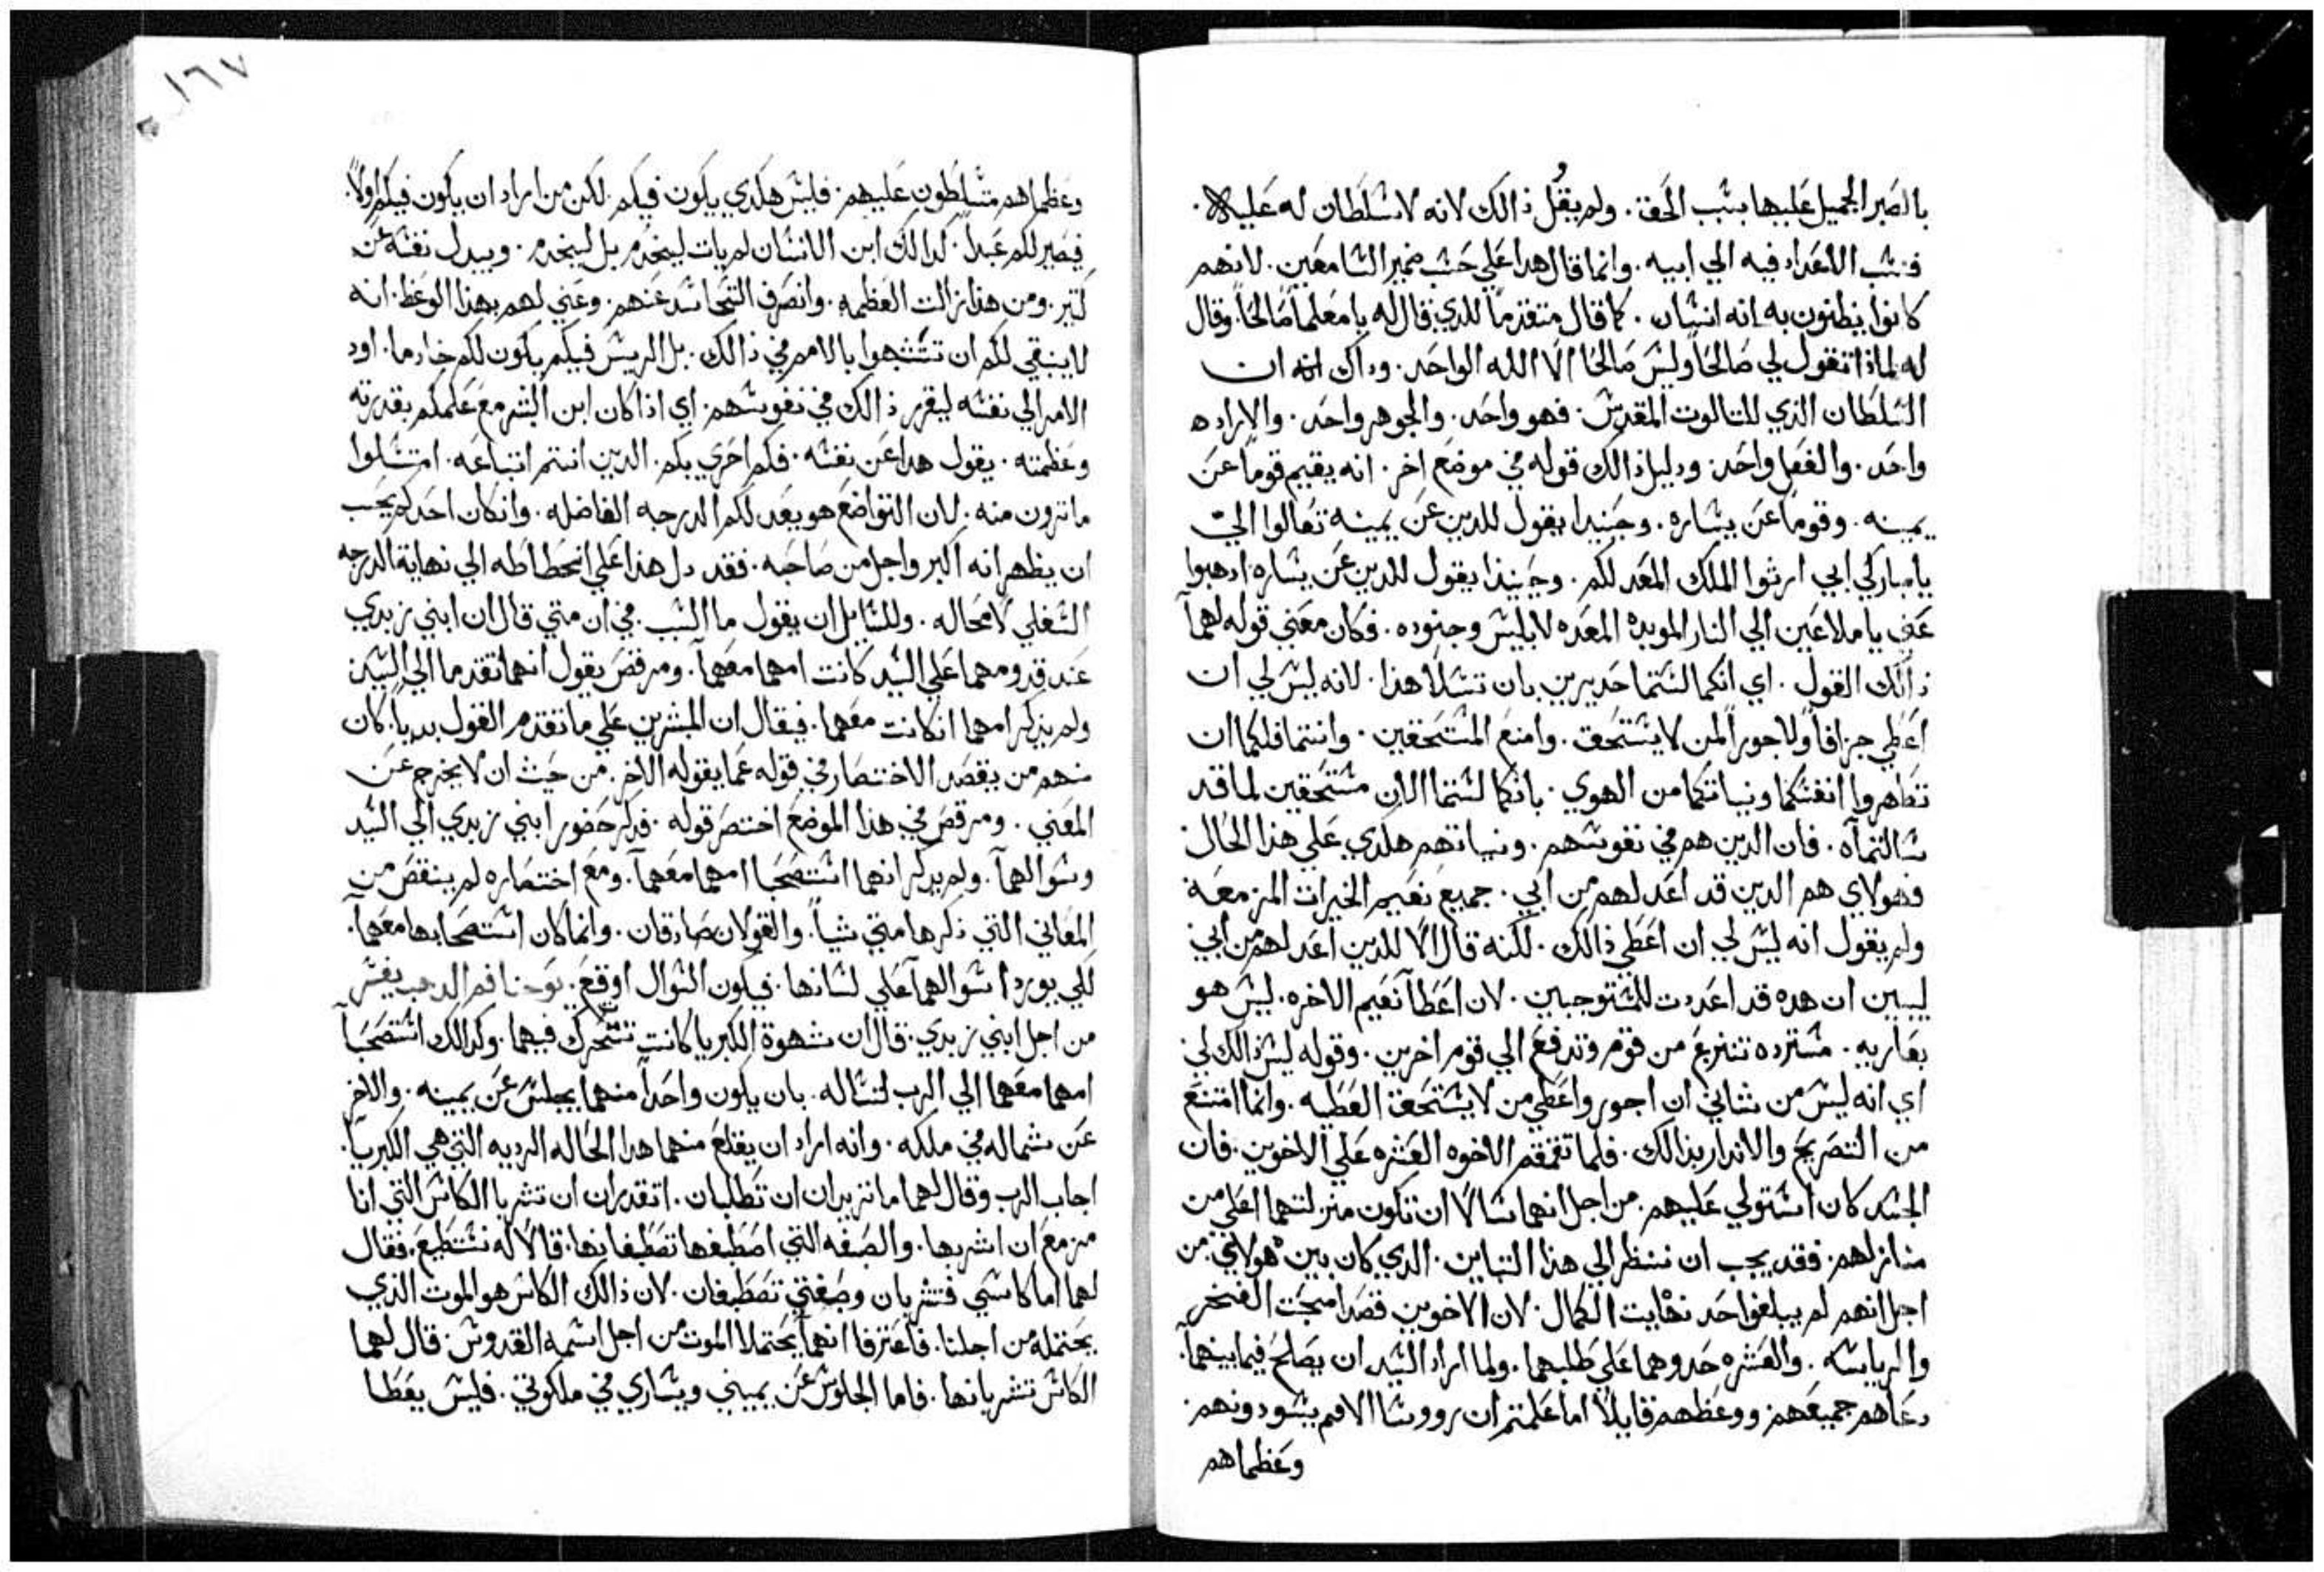 بالصبر الجميل عليها بسبب الحق. ولم يقُل ذالك لانه لا سلطان له عليه
فنسب الاعداد فيه الي ابيه. وانما قال هدا علي حسب ضمير السامعين. لانهم
كانوا يظنون به انه انسان. كما قال متقدماً للدي قال له يا معلماً صالحاً. وقال
له لماذا تقول لي صالحاً وليس صالحا الا الله الواحد. وداك انه ان
السلطان الذي للتالوت المقدس. فهو واحد. والجوهر واحد. والاراده
واحد. والفعل واحد. ودليل ذالك قوله في موضع اخر. انه يقيم قوماً عن
يمينه. وقوماً عن يساره. وحينيدا يقول للدين عن يمينه تعالوا اليّ
يا مباركي ابي ارثوا الملك المعد لكم. وحينيذا يقول للدين عن يساره ادهبوا
عني يا ملاعين الي النار الموبده المعده لابليس وجنوده. فكان معني قوله لهما
ذالك القول. اي انكما لستما جديرين بان تسلا هذا. لانه ليس لي ان
اعطي جزافاً ولا جوراً لمن لا يستحق. وامنع المستحقين. وانتما فلكما ان
تطهروا انفسكما ونياتكما من الهوي. بانكما لستما الان مستحقين لما قد
سالتماه. فان الدين هم في نفوسهم. ونياتهم هكدي علي هذا الحال.
فهولاي هم الدين قد اعد لهم من ابي. جميع نعيم الخيرات المزمعة
ولم يقول انه ليس لي ان اعطي ذالك. لكنه قال الا للدين اعد لهم من ابي
ليبين ان هده قد اعدت للمستوجبين. لان اعطآ نعيم الاخره. ليس هو
بعاريه. مسترده تنتزع من قوم وتدفع الي قوم اخرين. وقوله ليس ذالك لي
اي انه ليس من شاني ان اجور واعطي من لا يستحق العطيه. وانما امتنع
من التصريح والاندار بذالك. فلما تقمقم الاخوه العشره علي الاخوين. فان
الجسد كان استولي عليهم. من اجل انهما سالا ان تكون منزلتهما اعلي من
منازلهم. فقد يجب ان ننظر الي هذا التباين. الدي كان بين هولاي. من
اجل انهم لم يبلغوا حد نهايت الكمال. لان الاخوين قصدا محبت الفخر
والرياسه. والعشره حدوهما علي طلبهما. ولما اراد السيد ان يصلح فيما بينهما.
دعاهم جميعهم ووعظهم قايلاً اما علمتم ان رووسا الامم يسودونهم.
وعظماهم
١٦٧
وعظماهم متسلطون عليهم. فليس هكدي يكون فيكم. لكن من اراد ان يكون فيكم اولاً.
فيصير لكم عبداً. كدالك ابن الانسان لم يات ليُخدم بل ليَخدم. ويبدل نفسه عن
كتير. ومن هذا زالت العظمه. وانصرف التحاسد عنهم. وعني لهم بهذا الوعظ. انه
لا ينبغي لكم ان تتشبهوا بالامم في ذالك. بل الريس فيكم يكون لكم خادما. اورد
الامر الي نفسه ليقرر ذالك في نفوسهم. اي اذا كان ابن البشر مع علمكم بقدرته
وعظمته. يقول هدا عن نفسه. فكم احري بكم. الدين انتم اتباعه. امتتلوا
ما ترون منه. لان التواضع هو يعد لكم الدرجه الفاضله. وانكان احدكم يحب
ان يظهر انه اكبر واجل من صاحبه. فقد دل هذا علي انحطاطه الي نهاية الدرجه
السفلي لا محاله. وللسايل ان يقول ما السبب في ان متي قال ان ابني زبدي
عند قدومهما علي السيد كانت امهما معهما. ومرقص يقول انهما تقدما الي السيد
ولم يذكر امهما انكانت معهما. فيقال ان المبشرين علي ما تقدم القول بدياً. كان
منهم من يقصد الاختصار في قوله عما يقوله الاخر. من حيث ان لا يخرج عن
المعني. ومرقص في هذا الموضع اختصر قوله. فدكر حضور ابني زبدي الي السيد
وسوالهما. ولم يدكر انهما استصحبا امهما معهما. ومع اختصاره لم ينقص من
المعاني التي ذكرها متي شياً. والقولان صادقان. وانما كان استصحابها معهما.
لكي يوردا سوالهما علي لسانها. فيكون السوال اوقع. يوحنا فم الدهب يفسر
من اجل ابني زبدي. قال ان شهوة الكبريا كانت تتحرك فيهما. وكدالك استصحبا
امهما معهما الي الرب لتساله. بان يكون واحداً منهما يجلس عن يمينه. والاخر
عن شماله في ملكه. وانه اراد ان يقلع منهما هدا الحاله الرديه التي هي الكبريا.
اجاب الرب وقال لهما ما تريدان ان تطلبان. اتقدران ان تشربا الكاس التي انا
مزمع ان اشربها. والصبغه التي اصطبغها تصطبغانها. قالا له نستطيع. فقال
لهما اما كاسي فتشربان وصبغتي تصطبغان. لان ذالك الكاس هو الموت الذي
يحتمله من اجلنا. فاعترفا انهما يحتملا الموت من اجل اسمه القدوس. قال لهما
الكاس تشربانها. فاما الجلوس عن يميني ويساري في ملكوتي. فليس يعطا